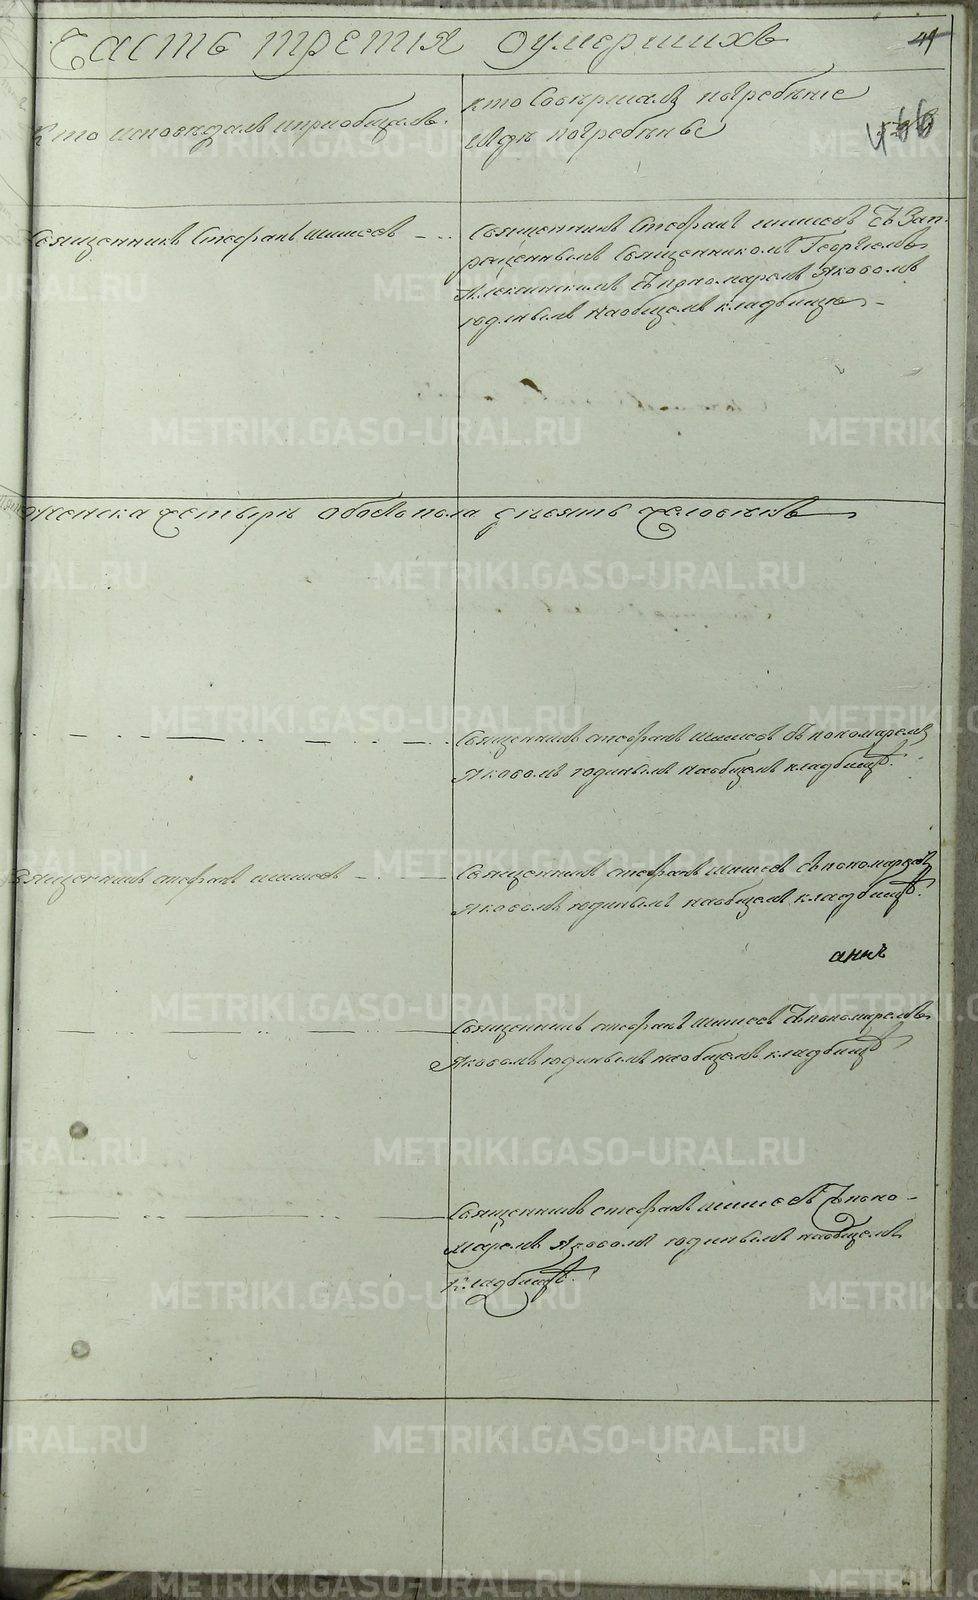 Часть третия о умершихъ
41
Кто исповедалъ и приобщалъ.
кто Совершалъ погребение
И где погребены
466
Священникъ Стефанъ Шишевъ
Священникъ Стефанъ Шишевъ съ Зап-
рещеннымъ Священникомъ Георгиемъ
съ пономаремъ Яковомъ
юдинымъ на общемъ кладбище
Женска четыре обоего пола девять человекъ
Священникъ стефанъ Шишевъ съ пономаремъ
Яковомъ юдинымъ на общемъ кладбище.
Священникъ стефанъ шишевъ
Священникъ стефанъ шишевъ съ пономаремъ
Яковомъ юдинымъ на общемъ кладбище.
Священникъ стефанъ шишевъ съ пономаремъ
Яковомъ юдинымъ на общемъ кладбище
Священникъ стефанъ шишевъ съ поно-
маремъ Яковомъ юдинымъ на общемъ
кладбище.
METRIKI.GASO-URAL.RU